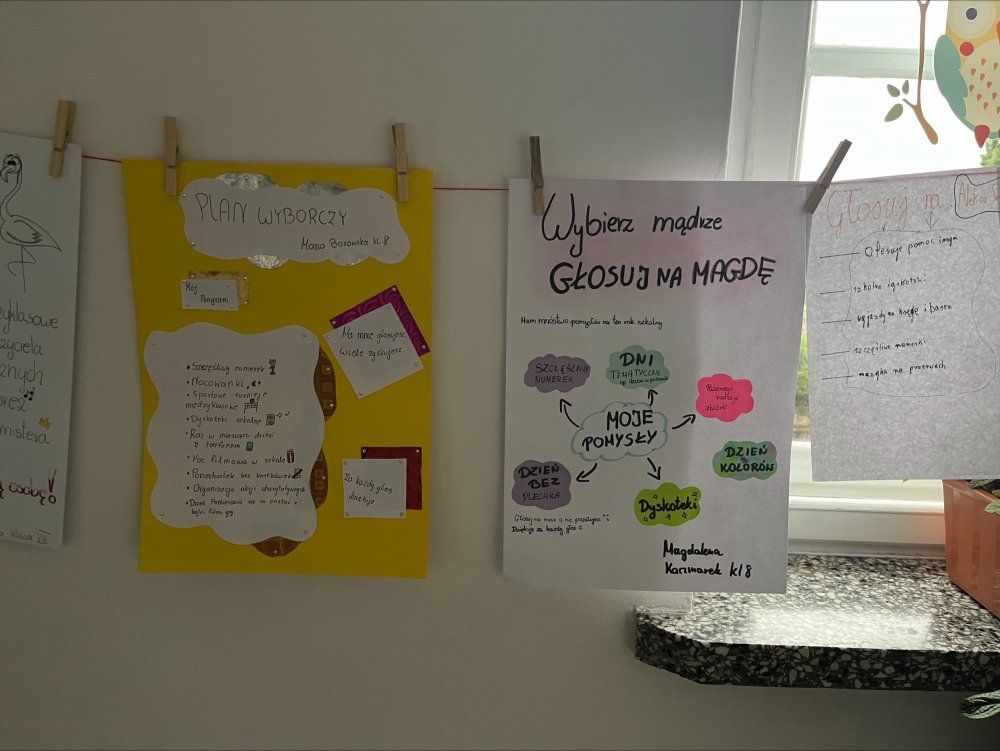 yklasowe
zyciela
znych
misteva
ą osobę!
klasa VII
PLAN WYBORCZY
Maria Borowska kl. 8
Mój
Program
Ma mnie głosujesz,
Wiele zyskujesz
• Szczęśliwy numerek
• Nocowanki
• Sportowe turnieje
międzyklasowe
• Dyskoteki szkolne
• Raz w miesiącu dzień
z telefonem
• Noc filmowa w szkole
• Poniedziałek bez kartkówek
• Organizacja akcji charytatywnych
• Dzień Przebierania się za postać z
bajki, filmu, gry.
Za każdy głos
dziękuje
Wybierz mądrze
GŁOSUJ NA MAGDĘ
Mam mnóstwo pomysłów na ten rok szkolny
SZCZĘŚLIWY
NUMEREK
DNI
TEMATYCZNE
np dzień w piżamie
Różnego
rodzaju
zbiórki
MOJE
POMYSŁY
DZIEŃ
KOLORÓW
DZIEŃ
BEZ
PLECAKA
Dyskoteki
Głosuj na mnie a nie pożałujesz
Dziękuje za każdy głos
Magdalena
Kaczmarek kl 8
Głosuj na
Oferuje pomoc
szkolne dyskoteki
wyjazdy na kręgle i basen
szczęśliwe numerki
muzyka na przerwach